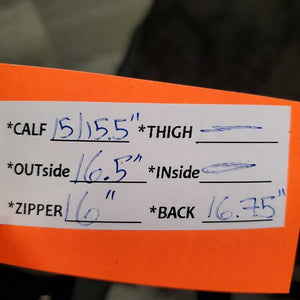 *CALF 15/15.5" *THIGH —
*OUTside 16.5" *INside —
*ZIPPER 16" *BACK 16.75"